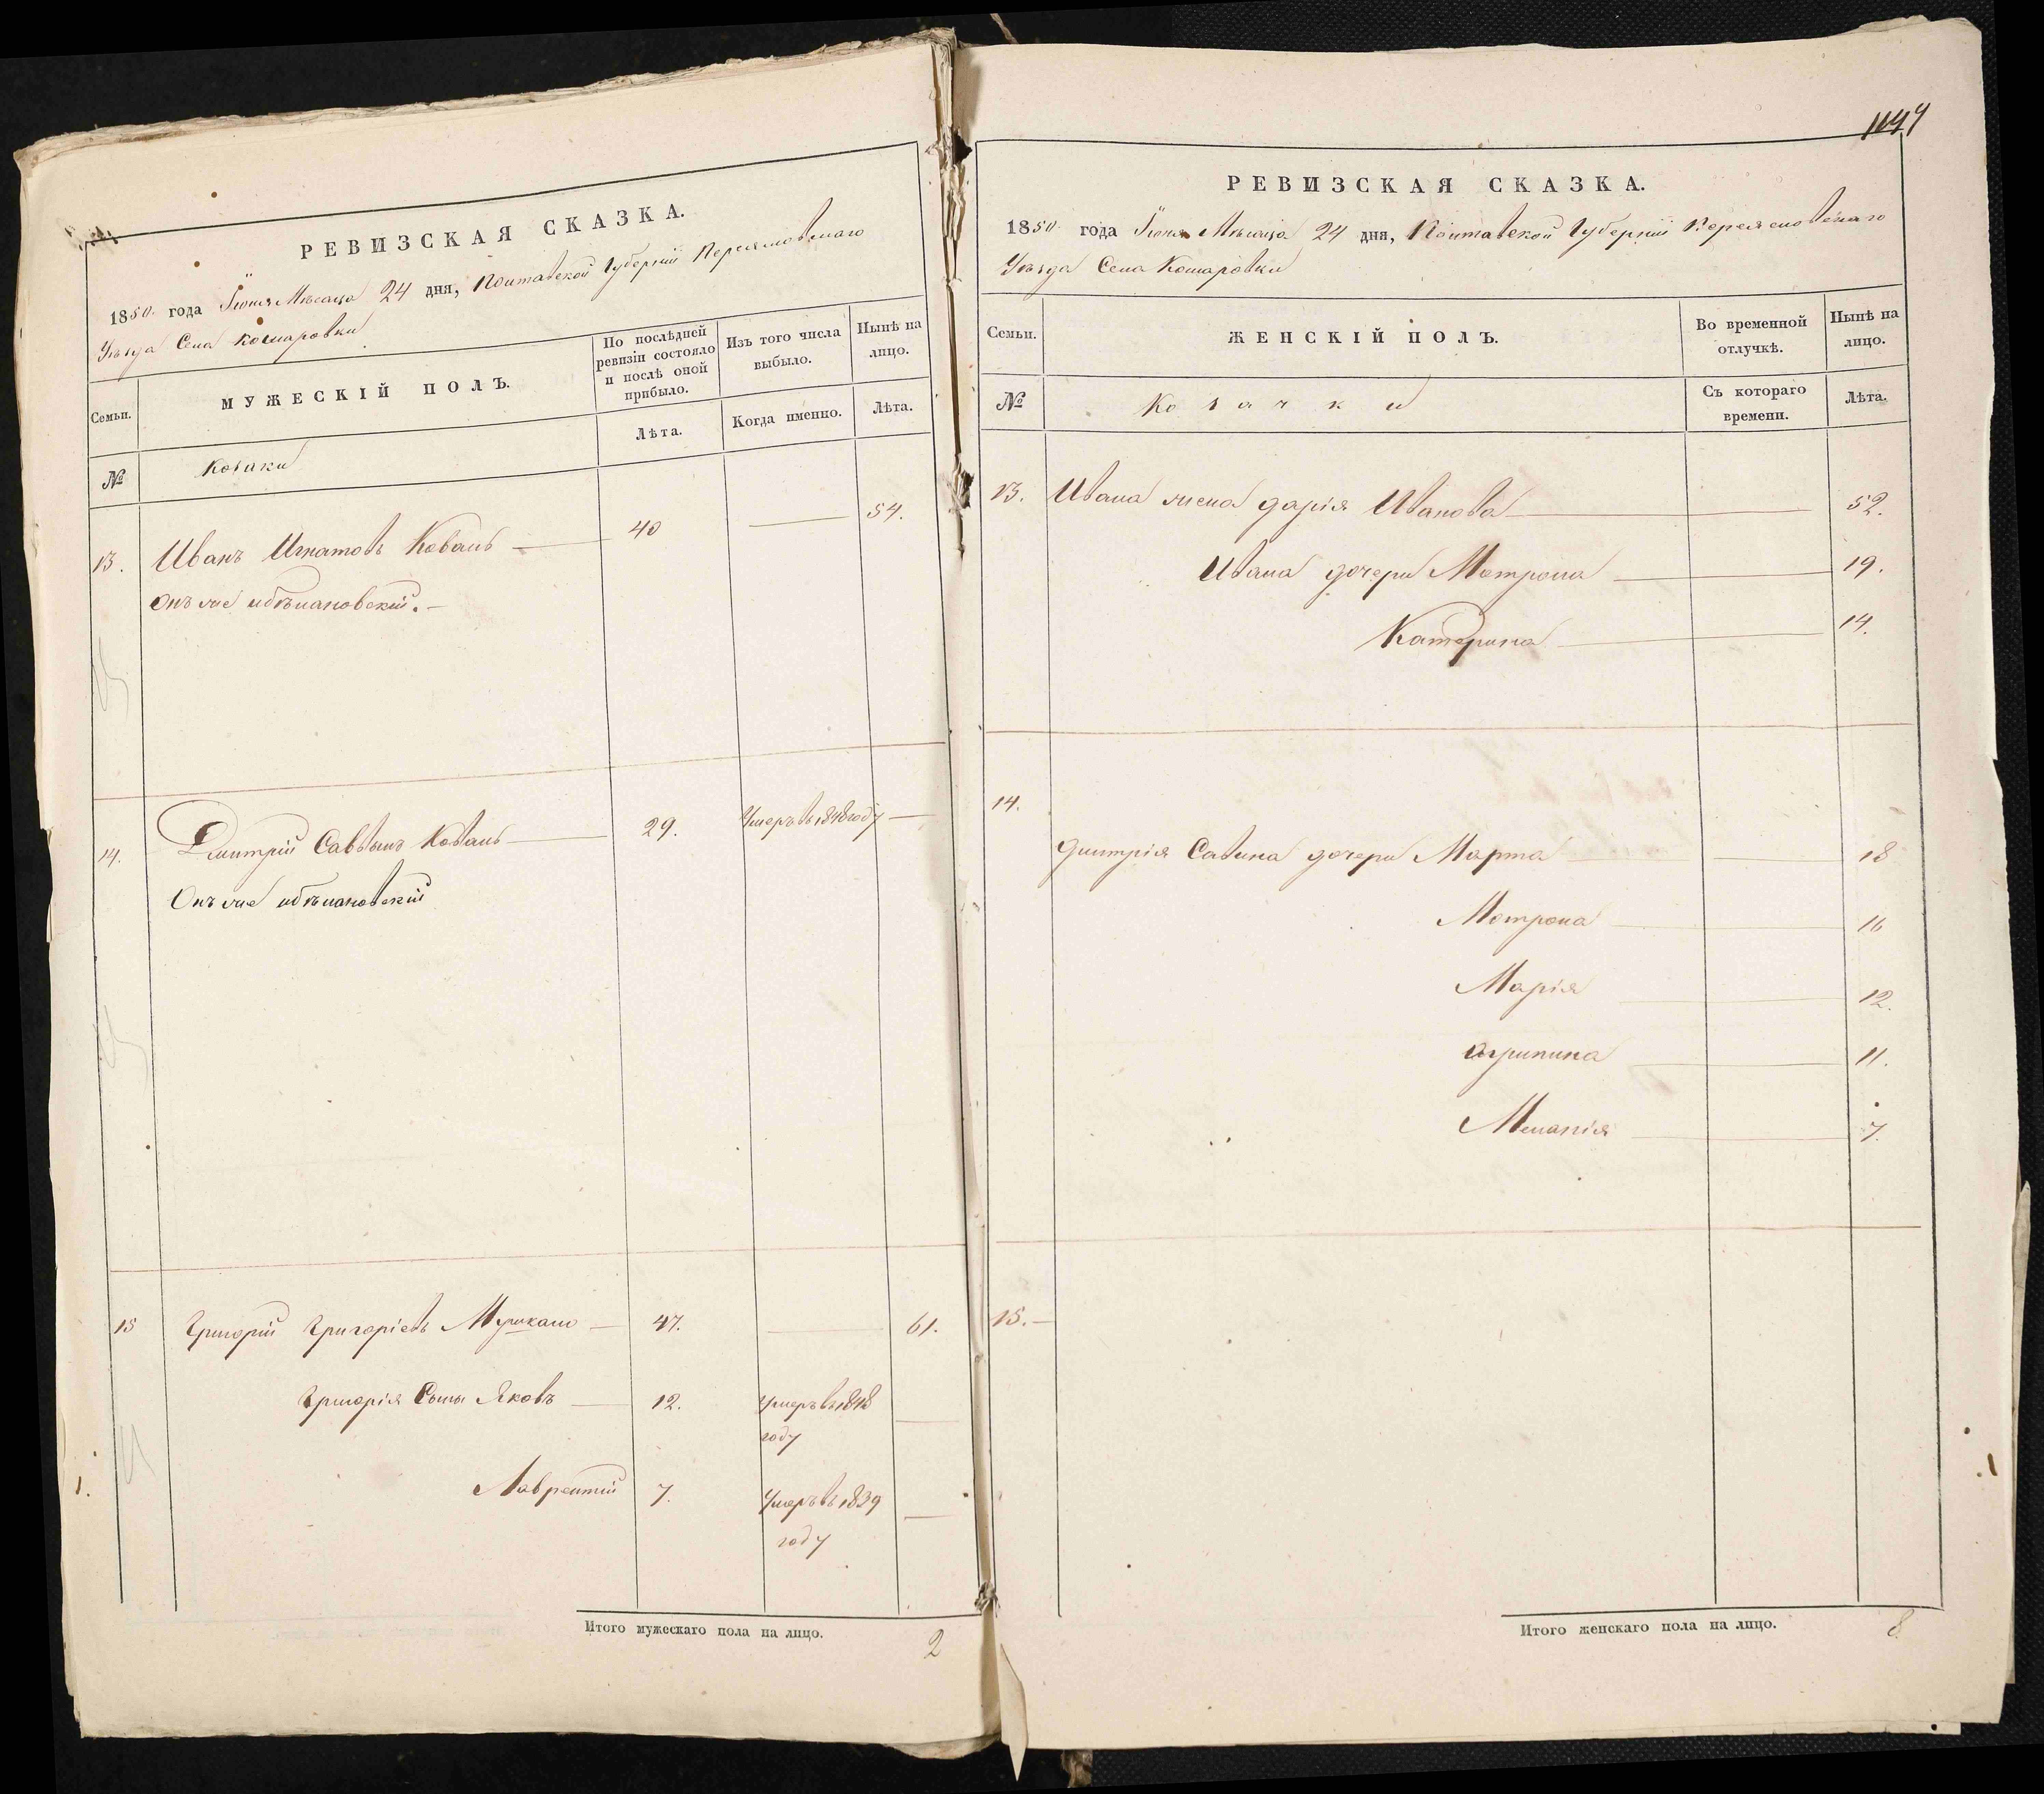 РЕВИЗСКАЯ СКАЗКА.
1850 года Іюня Мѣсяца 24 дня, Полтавской Губерніи Переясловскаго
Уѣзда Села Комаровки
Семьи. МУЖЕСКІЙ ПОЛЪ. По послѣдней ревизіи состояло и послѣ оной прибыло. Изъ того числа выбыло. Нынѣ на лицо.
№ Козаки Лѣта. Когда именно. Лѣта.
13. Иванъ Игнатовъ Коваль 40 54.
Онъ же
14. Дмитрій Саввинъ Коваль 29. Умеръ въ 1848 году
Онъ же
15 Григорій Григоріевъ 47. 61.
Григорія Сыны Яковъ 12. Умеръ въ 1848
году
Лаврентій 7. Умеръ въ 1839
году
1.
Итого мужескаго пола на лицо. 2
РЕВИЗСКАЯ СКАЗКА.
1850 года Іюня Мѣсяца 24 дня, Полтавской Губерніи Переясловскаго
Уѣзда Села Комаровки
Семьи. ЖЕНСКІЙ ПОЛЪ. Во временной отлучкѣ. Нынѣ на лицо.
№ Козачки Съ котораго времени. Лѣта.
13. Ивана жена Дарія Иванова 52.
Ивана дочери Мотрона 19.
Катерина 14.
14.
Дмитрія Савина дочери Марта 18
Мотрона 16
Марія 12.
Агрипина 11.
Меланія 7.
15.
Итого женскаго пола на лицо. 8